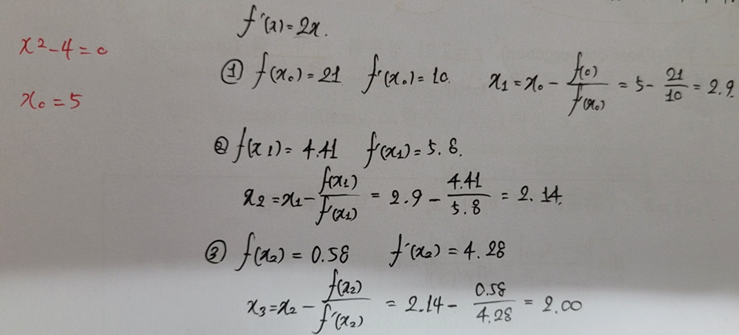 x²-4=0
x₀=5
f'(x)=2x.
① f(x₀)=21 f'(x₀)=10. x₁=x₀-f(0)/f'(x₀)=5-21/10=2.9.
② f(x₁)=4.41 f'(x₁)=5.8.
x₂=x₁-f(x₁)/f'(x₁)=2.9-4.41/5.8=2.14.
③ f(x₂)=0.58 f'(x₂)=4.28
x₃=x₂-f(x₂)/f'(x₂)=2.14-0.58/4.28=2.00